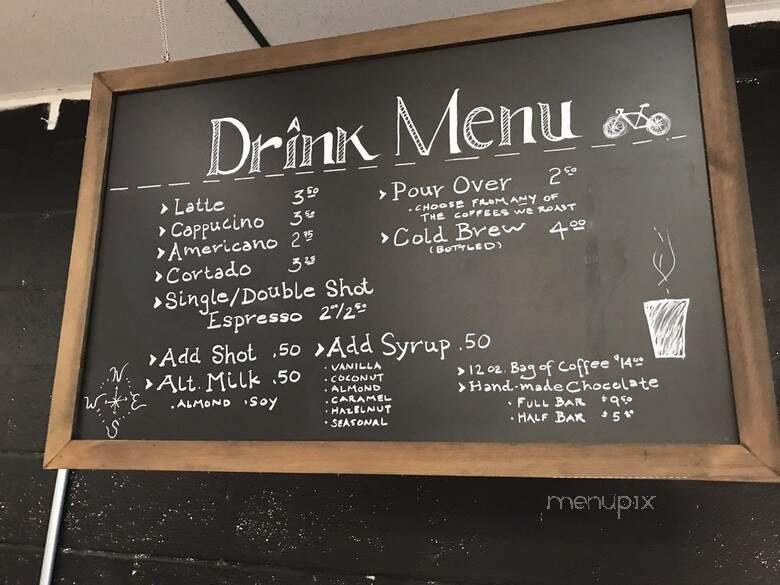 Drink Menu
> Latte 3 50
> Cappucino 3 50
> Americano 2 75
> Cortado 3 25
> Single/Double Shot
Espresso 2 00/2 50
> Pour Over 2 50
· CHOOSE FROM ANY OF
THE COFFEES WE ROAST
> Cold Brew 4 00
(BOTTLED)
> Add Shot .50
> Alt. Milk .50
· ALMOND · SOY
> Add Syrup .50
· VANILLA
· COCONUT
· ALMOND
· CARAMEL
· HAZELNUT
· SEASONAL
> 12 oz. Bag of Coffee $14 00
> Hand-made Chocolate
· FULL BAR $9 50
· HALF BAR $5
N
W E
S
menupix